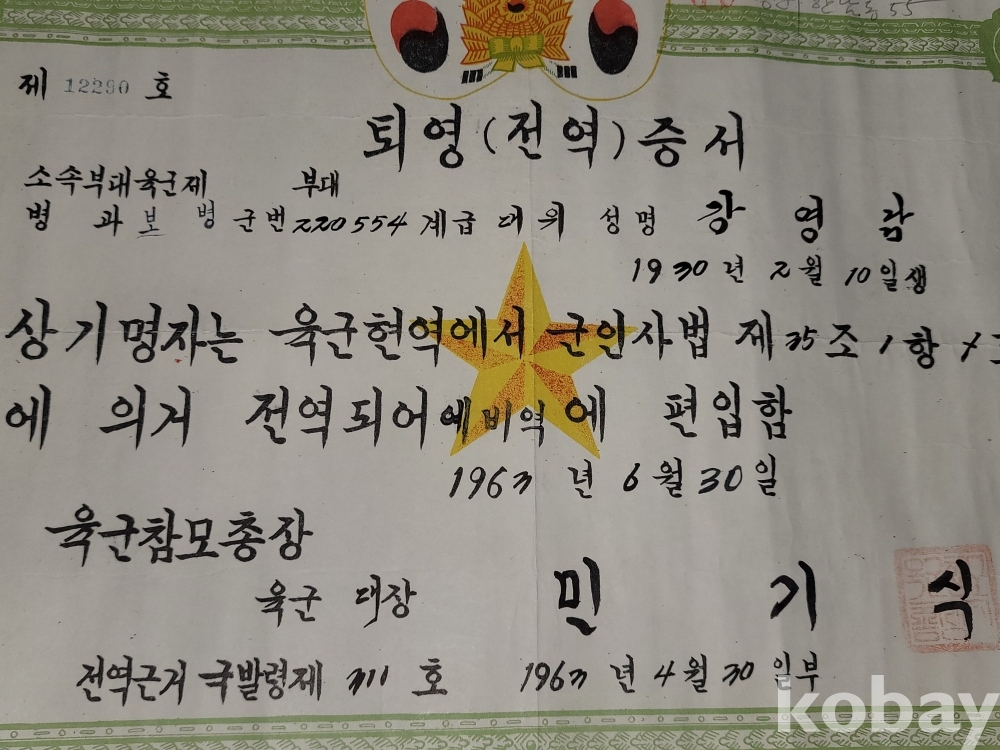 제 12290 호
퇴영(전역)증서
소속부대육군제 부대
병 과 보 병 군번 220554 계급 대위 성명 강 영
1930년 2월 10일생
상기명자는 육군현역에서 군인사법 제35조 1항
에 의거 전역되어예비역에 편입함
1963년 6월 30일
육군참모총장
육군 대장 민 기 식
전역근거 국발령제 311 호 1963년 4월 30일부
kobay